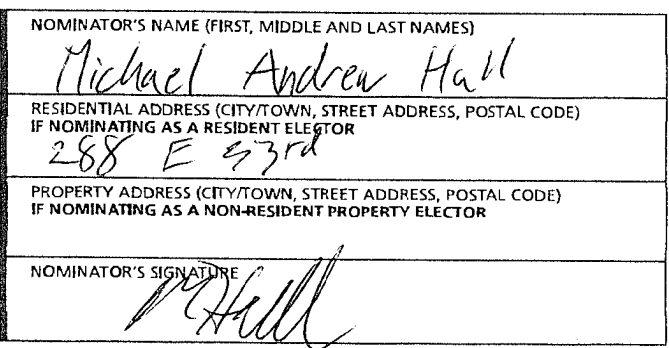 NOMINATOR'S NAME (FIRST, MIDDLE AND LAST NAMES)
Michael Andrew Hall
RESIDENTIAL ADDRESS (CITY/TOWN, STREET ADDRESS, POSTAL CODE)
IF NOMINATING AS A RESIDENT ELECTOR
288 E 53rd
PROPERTY ADDRESS (CITY/TOWN, STREET ADDRESS, POSTAL CODE)
IF NOMINATING AS A NON-RESIDENT PROPERTY ELECTOR
NOMINATOR'S SIGNATURE
MHall